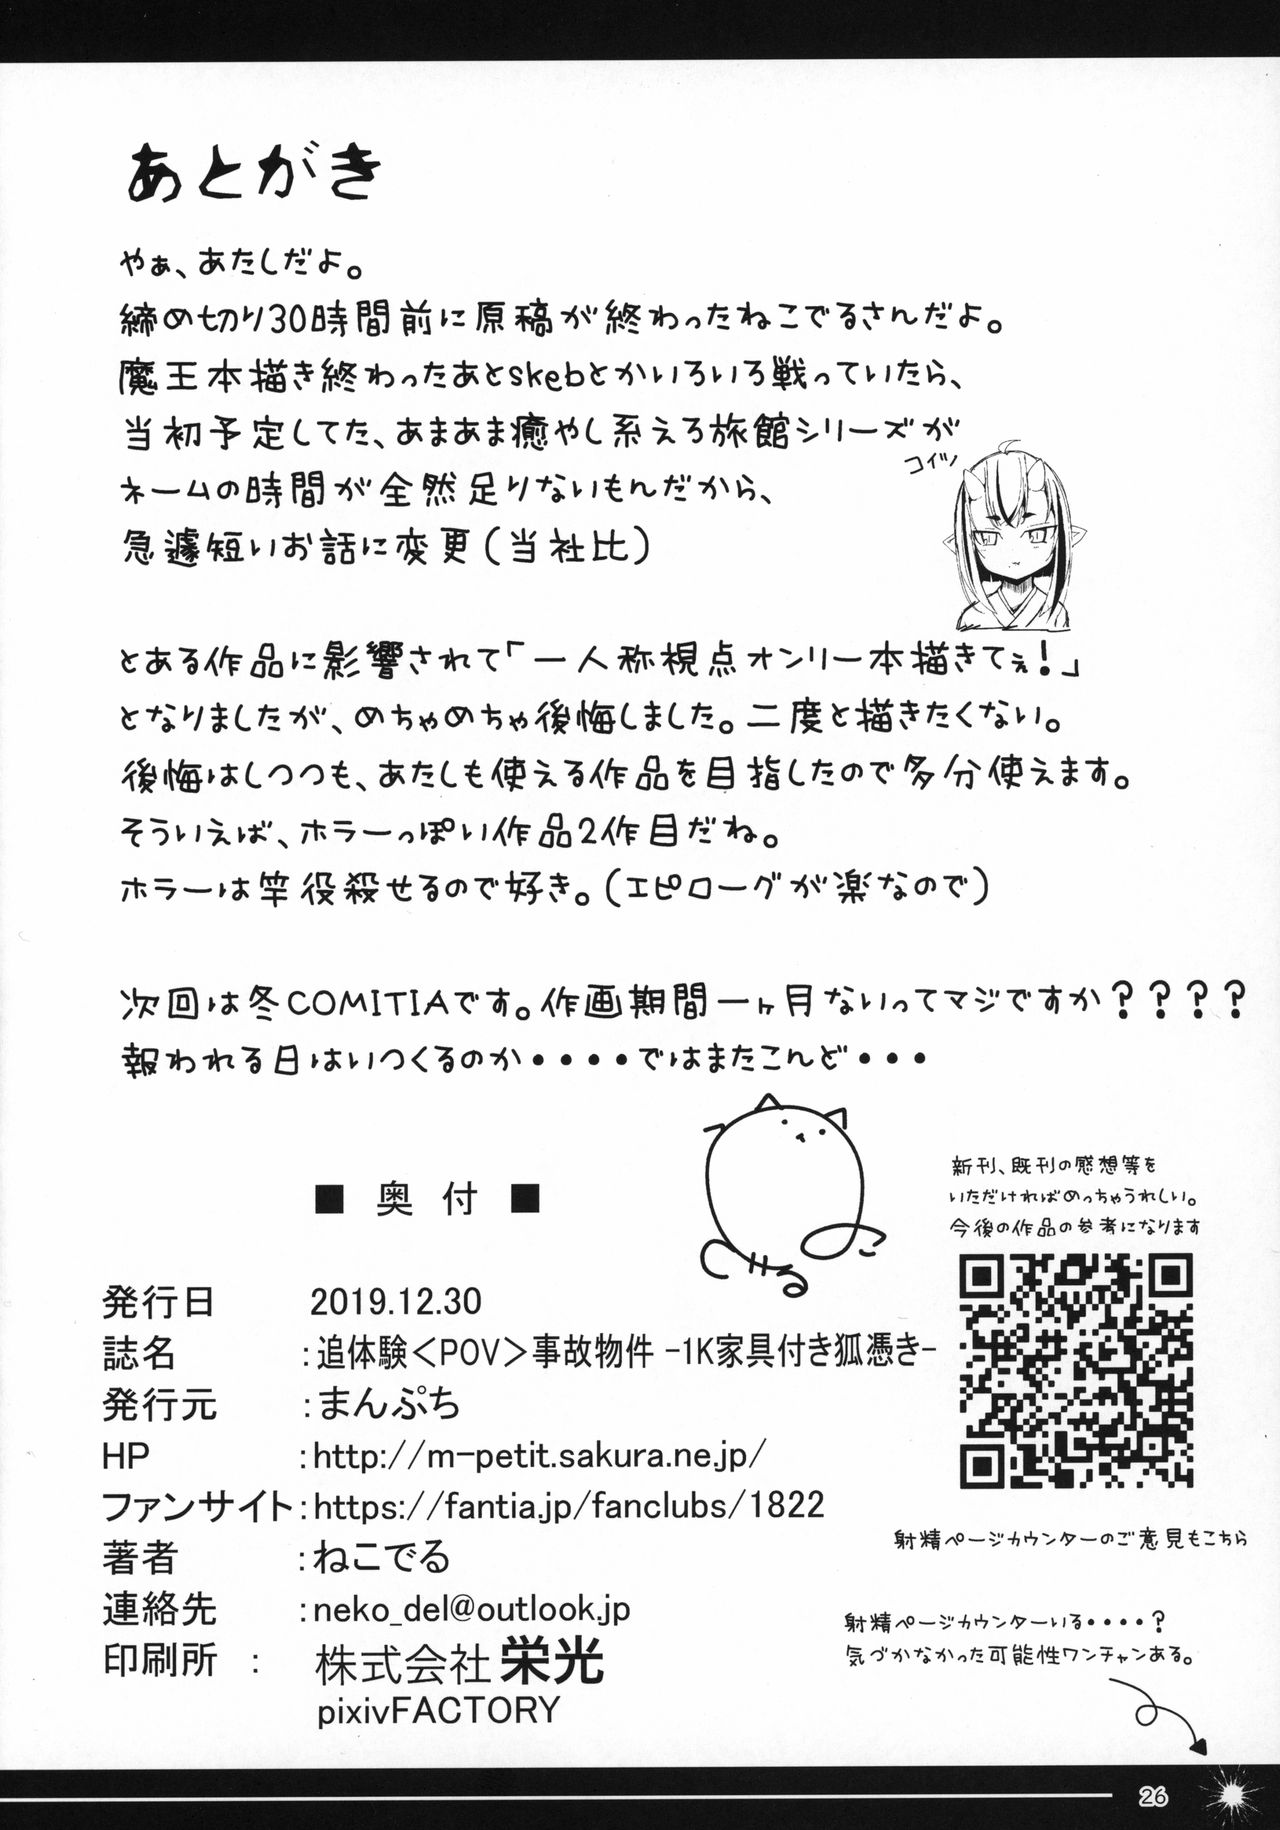 あとがき
やぁ、あたしだよ。
締め切り30時間前に原稿が終わったねこでるさんだよ。
魔王本描き終わったあとskebとかいろいろ戦っていたら、
当初予定してた、あまあま癒やし系えろ旅館シリーズが
コイツ
ネームの時間が全然足りないもんだから、
急遽短いお話に変更(当社比)
とある作品に影響されて「一人称視点オンリー本描きてぇ!」
となりましたが、めちゃめちゃ後悔しました。二度と描きたくない。
後悔はしつつも、あたしも使える作品を目指したので多分使えます。
そういえば、ホラーっぽい作品2作目だね。
ホラーは竿役殺せるので好き。(エピローグが楽なので)
次回は冬COMITIAです。作画期間一ヶ月ないってマジですか????
報われる日はいつくるのか・・・・ではまたこんど・・・
■ 奥 付 ■
発行日 2019.12.30
誌名 :追体験<POV>事故物件 -1K家具付き狐憑き-
発行元 :まんぷち
HP :http://m-petit.sakura.ne.jp/
ファンサイト:https://fantia.jp/fanclubs/1822
著者 :ねこでる
連絡先 :neko_del@outlook.jp
印刷所 : 株式会社 栄光
pixivFACTORY
新刊、既刊の感想等を
いただければめっちゃうれしい。
今後の作品の参考になります
射精ページカウンターのご意見もこちら
射精ページカウンターいる・・・・?
気づかなかった可能性ワンチャンある。
26